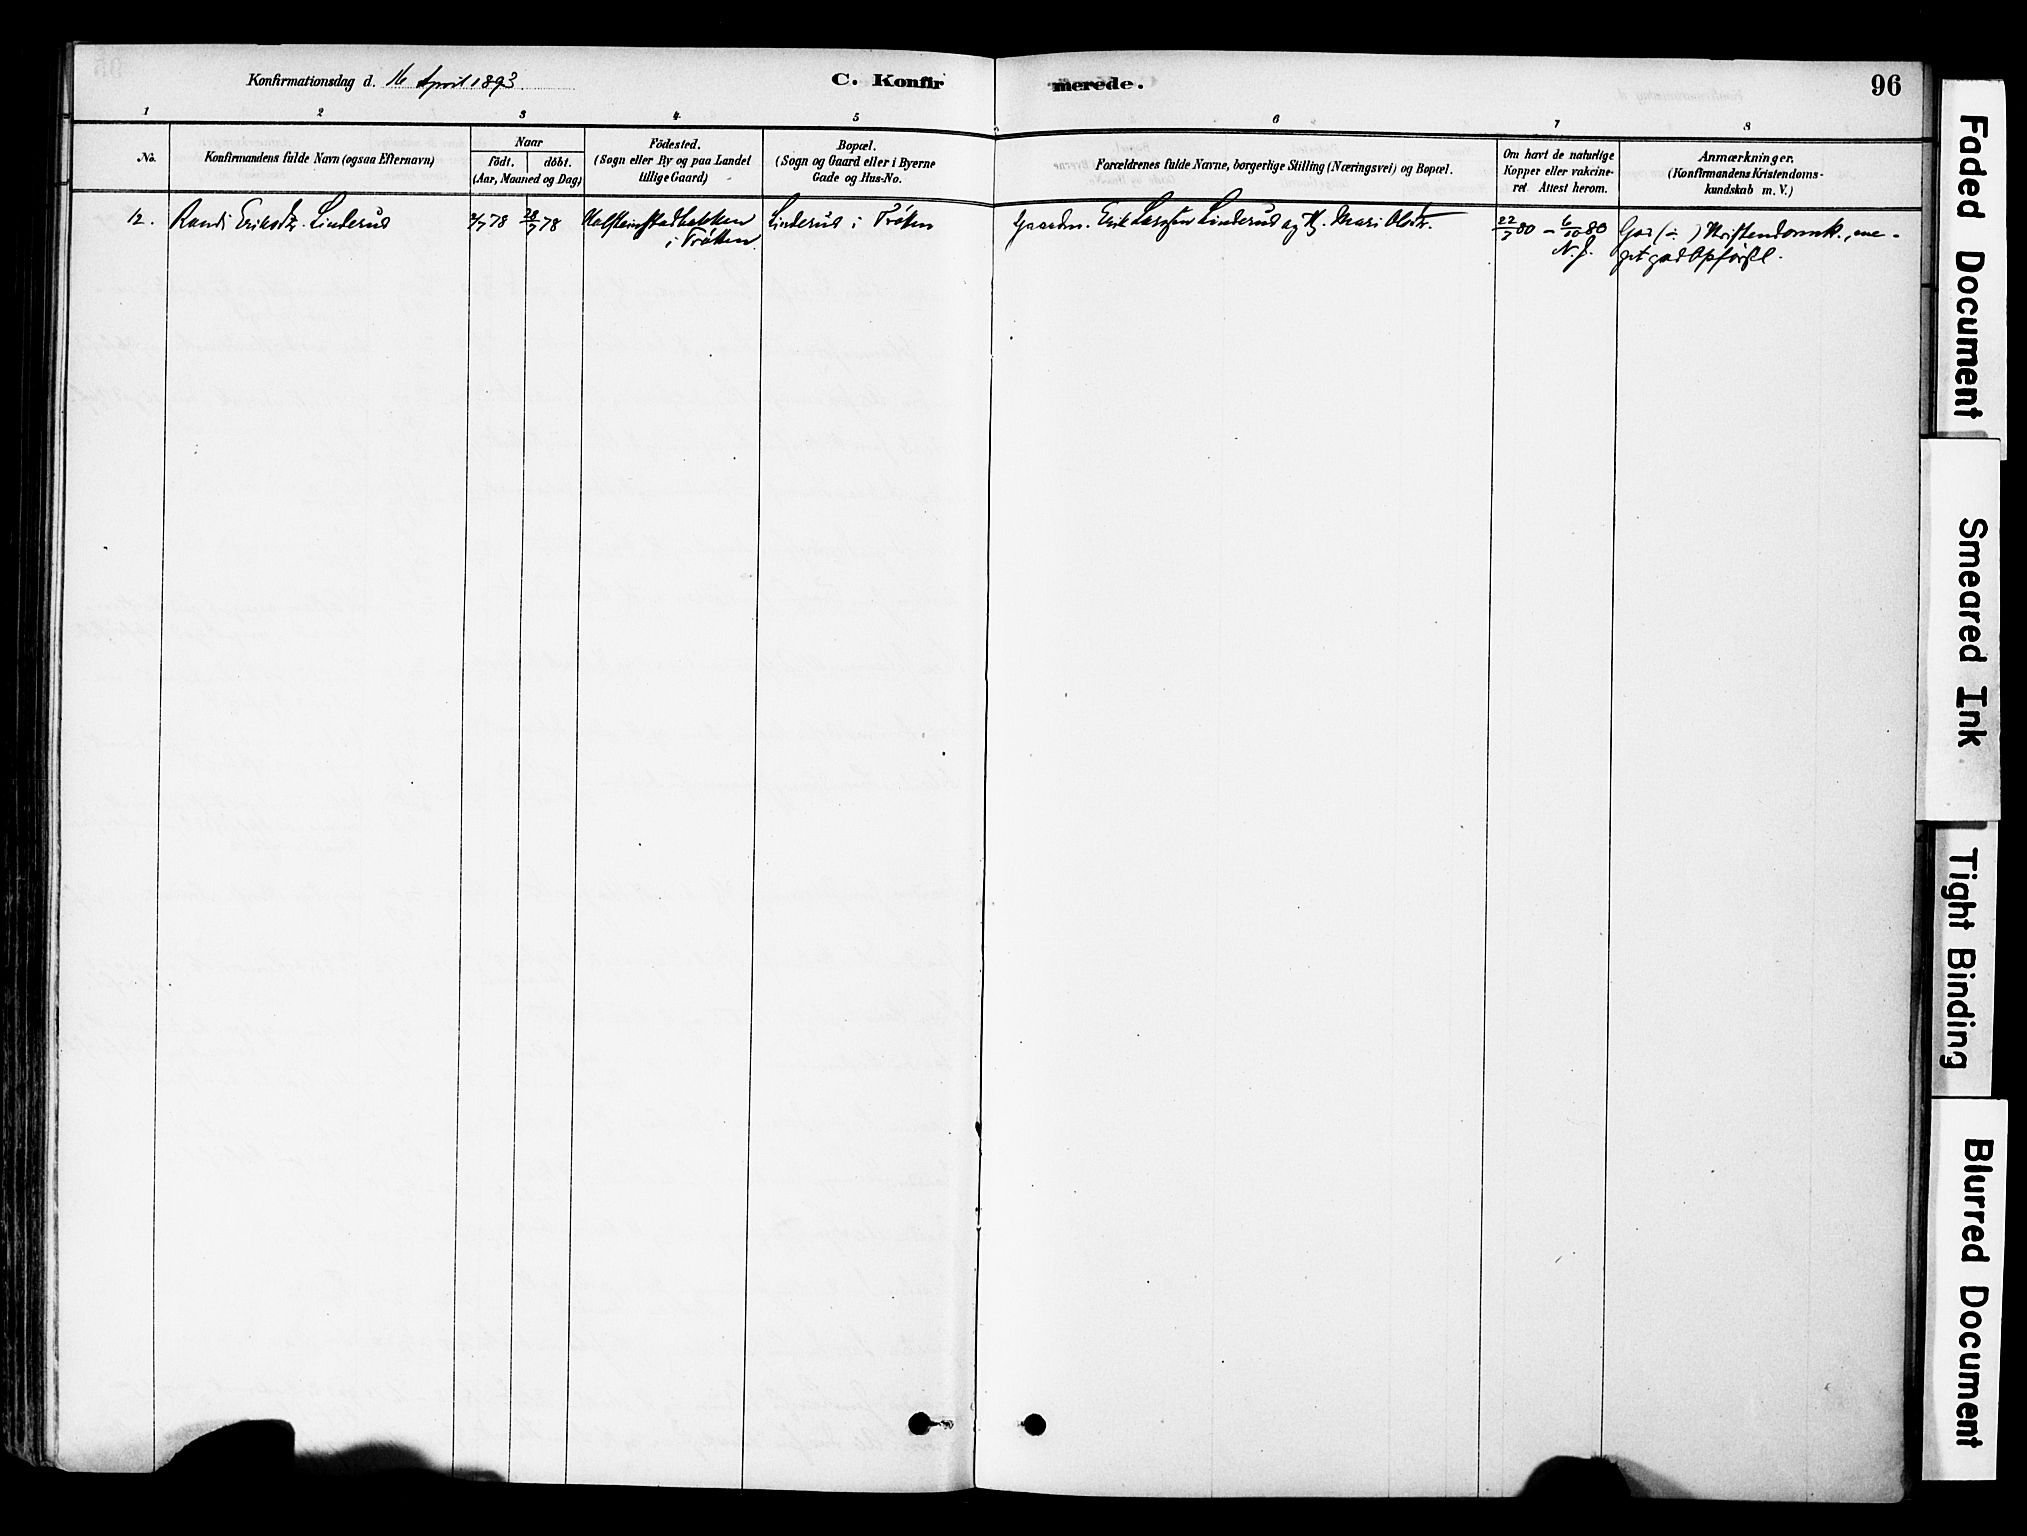 Konfirmationsdag d. 16 April 1893.
C. Konfirmerede.
96
1 2 3 4 5 6 7 8
No.
Konfirmandens fulde Navn (ogsaa Efternavn)
Naar
födt. döbt.
(Aar, Maaned og Dag)
Födested.
(Sogn eller By og paa Landet
tillige Gaard)
Bopæl.
(Sogn og Gaard eller i Byerne
Gade og Hus-No.
Forældrenes fulde Navne, borgerlige Stilling (Næringsvei) og Bopæl.
Om havt de naturlige
Kopper eller vakcine-
ret. Attest herom.
Anmærkninger.
(Konfirmandens Kristendoms-
kundskab m. V.)
12.
Randi Eriksdtr. Linderud
2/7 78
28/7 78
i Trötten
Linderud i Trötten
Gaardm. Erik Larssen Linderud og H. Mari Olsdtr.
22/7 80 - 6/10 80
N. J.
God (÷) Kristendomsk., me-
get god Opförsel.
Faded Document
Smeared Ink
Tight Binding
Blurred Document